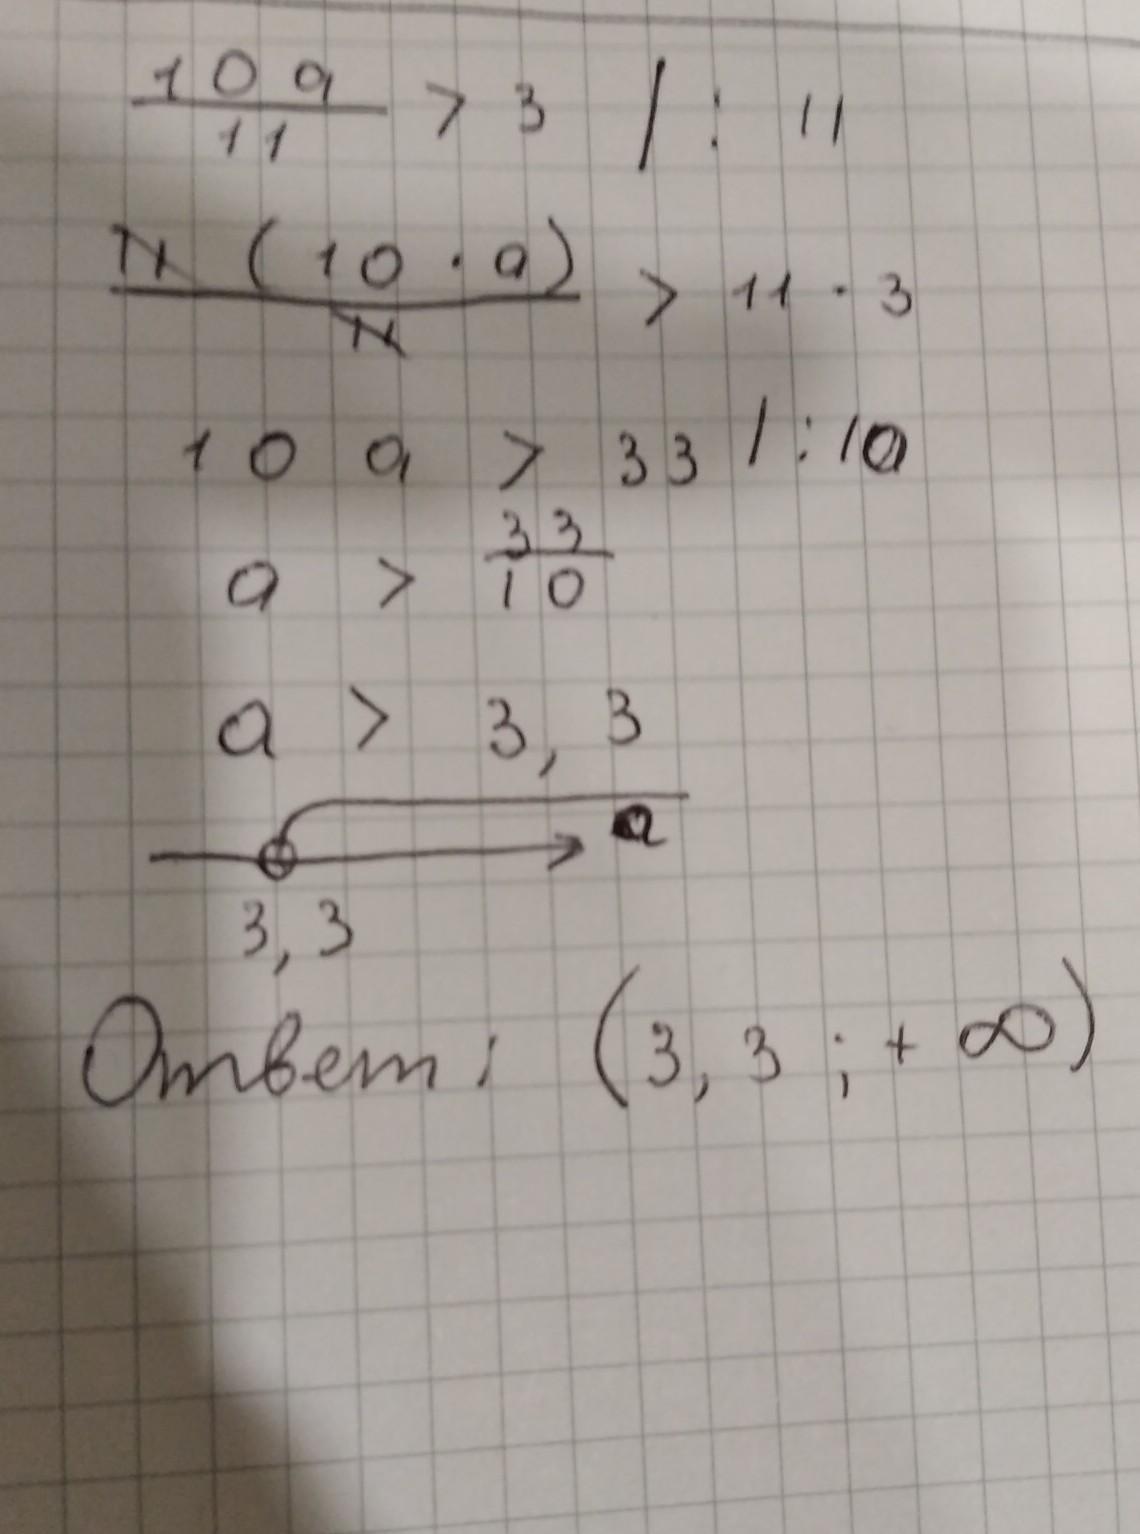 10a/11 > 3 / : 11
11(10 · a)/11 > 11 · 3
10a > 33 / : 10
a > 33/10
a > 3,3
a
3,3
Ответ: (3,3 ; + ∞)